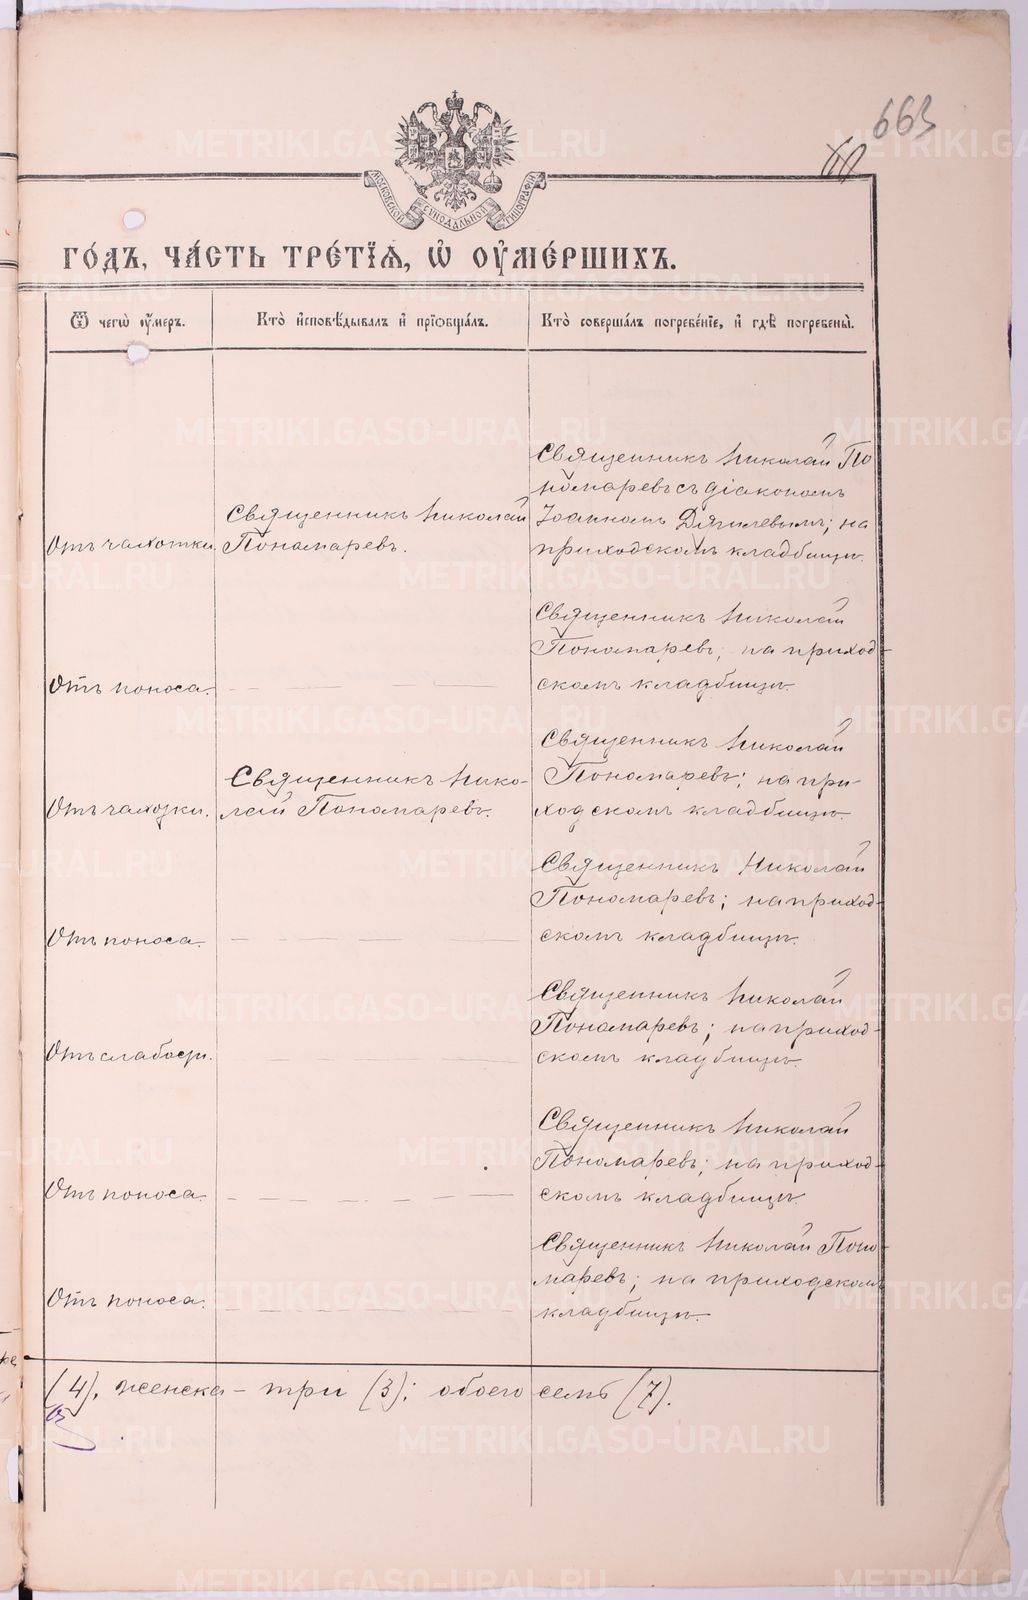 663
МОСКОВСКОЙ СѴНОДАЛЬНОЙ ТИПОГРАФІИ
ГО́ДЪ, ЧА́СТЬ ТРЕ́ТІѦ, Ѡ҆ ОУ҆МЕ́РШИХЪ.
Ѿ чегѡ̀ ᲂу҆́меръ.
Кто̀ и҆сповѣ́дывалъ и҆ прїѡбща́лъ.
Кто̀ соверша́лъ погребе́нїе, и҆ гдѣ̀ погребены̀.
Отъ чахотки.
Священникъ Николай
Пономаревъ.
Священникъ Николай По
номаревъ съ діакономъ
Іоанномъ Дягилевымъ; на
приходскомъ кладбищѣ.
Отъ поноса.
Священникъ Николай
Пономаревъ; на приход-
скомъ кладбищѣ.
Отъ чахотки.
Священникъ Нико-
лай Пономаревъ.
Священникъ Николай
Пономаревъ; на при-
ходскомъ кладбищѣ.
Отъ поноса.
Священникъ Николай
Пономаревъ; на приход-
скомъ кладбищѣ.
Отъ слабости.
Священникъ Николай
Пономаревъ; на приход-
скомъ кладбищѣ.
Отъ поноса.
Священникъ Николай
Пономаревъ; на приход-
скомъ кладбищѣ.
Отъ поноса.
Священникъ Николай Поно-
маревъ; на приходскомъ
кладбищѣ.
(4), женска – три (3); обоего семь (7).
METRIKI.GASO-URAL.RU